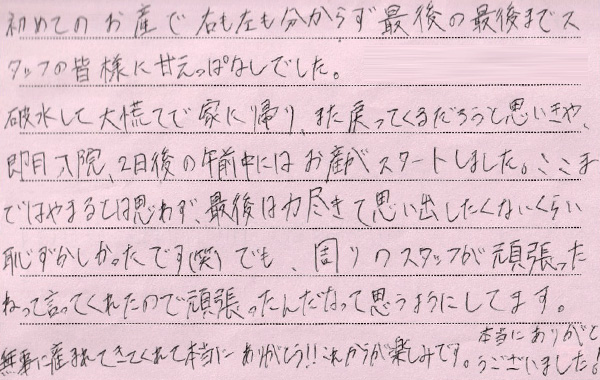 初めてのお産で右も左も分からず最後の最後までス
タッフの皆様に甘えっぱなしでした。
破水して大慌てで家に帰り、また戻ってくるだろうと思いきや、
即日入院、2日後の午前中にはお産がスタートしました。ここま
ではやまるとは思わず、最後は力尽きて思い出したくないくらい
恥ずかしかったです(笑)でも、周りのスタッフが頑張った
ねって言ってくれたので頑張ったんだなって思うようにしてます。
無事に産まれてきてくれて本当にありがとう!!これからが楽しみです。
本当にありがと
うございました!